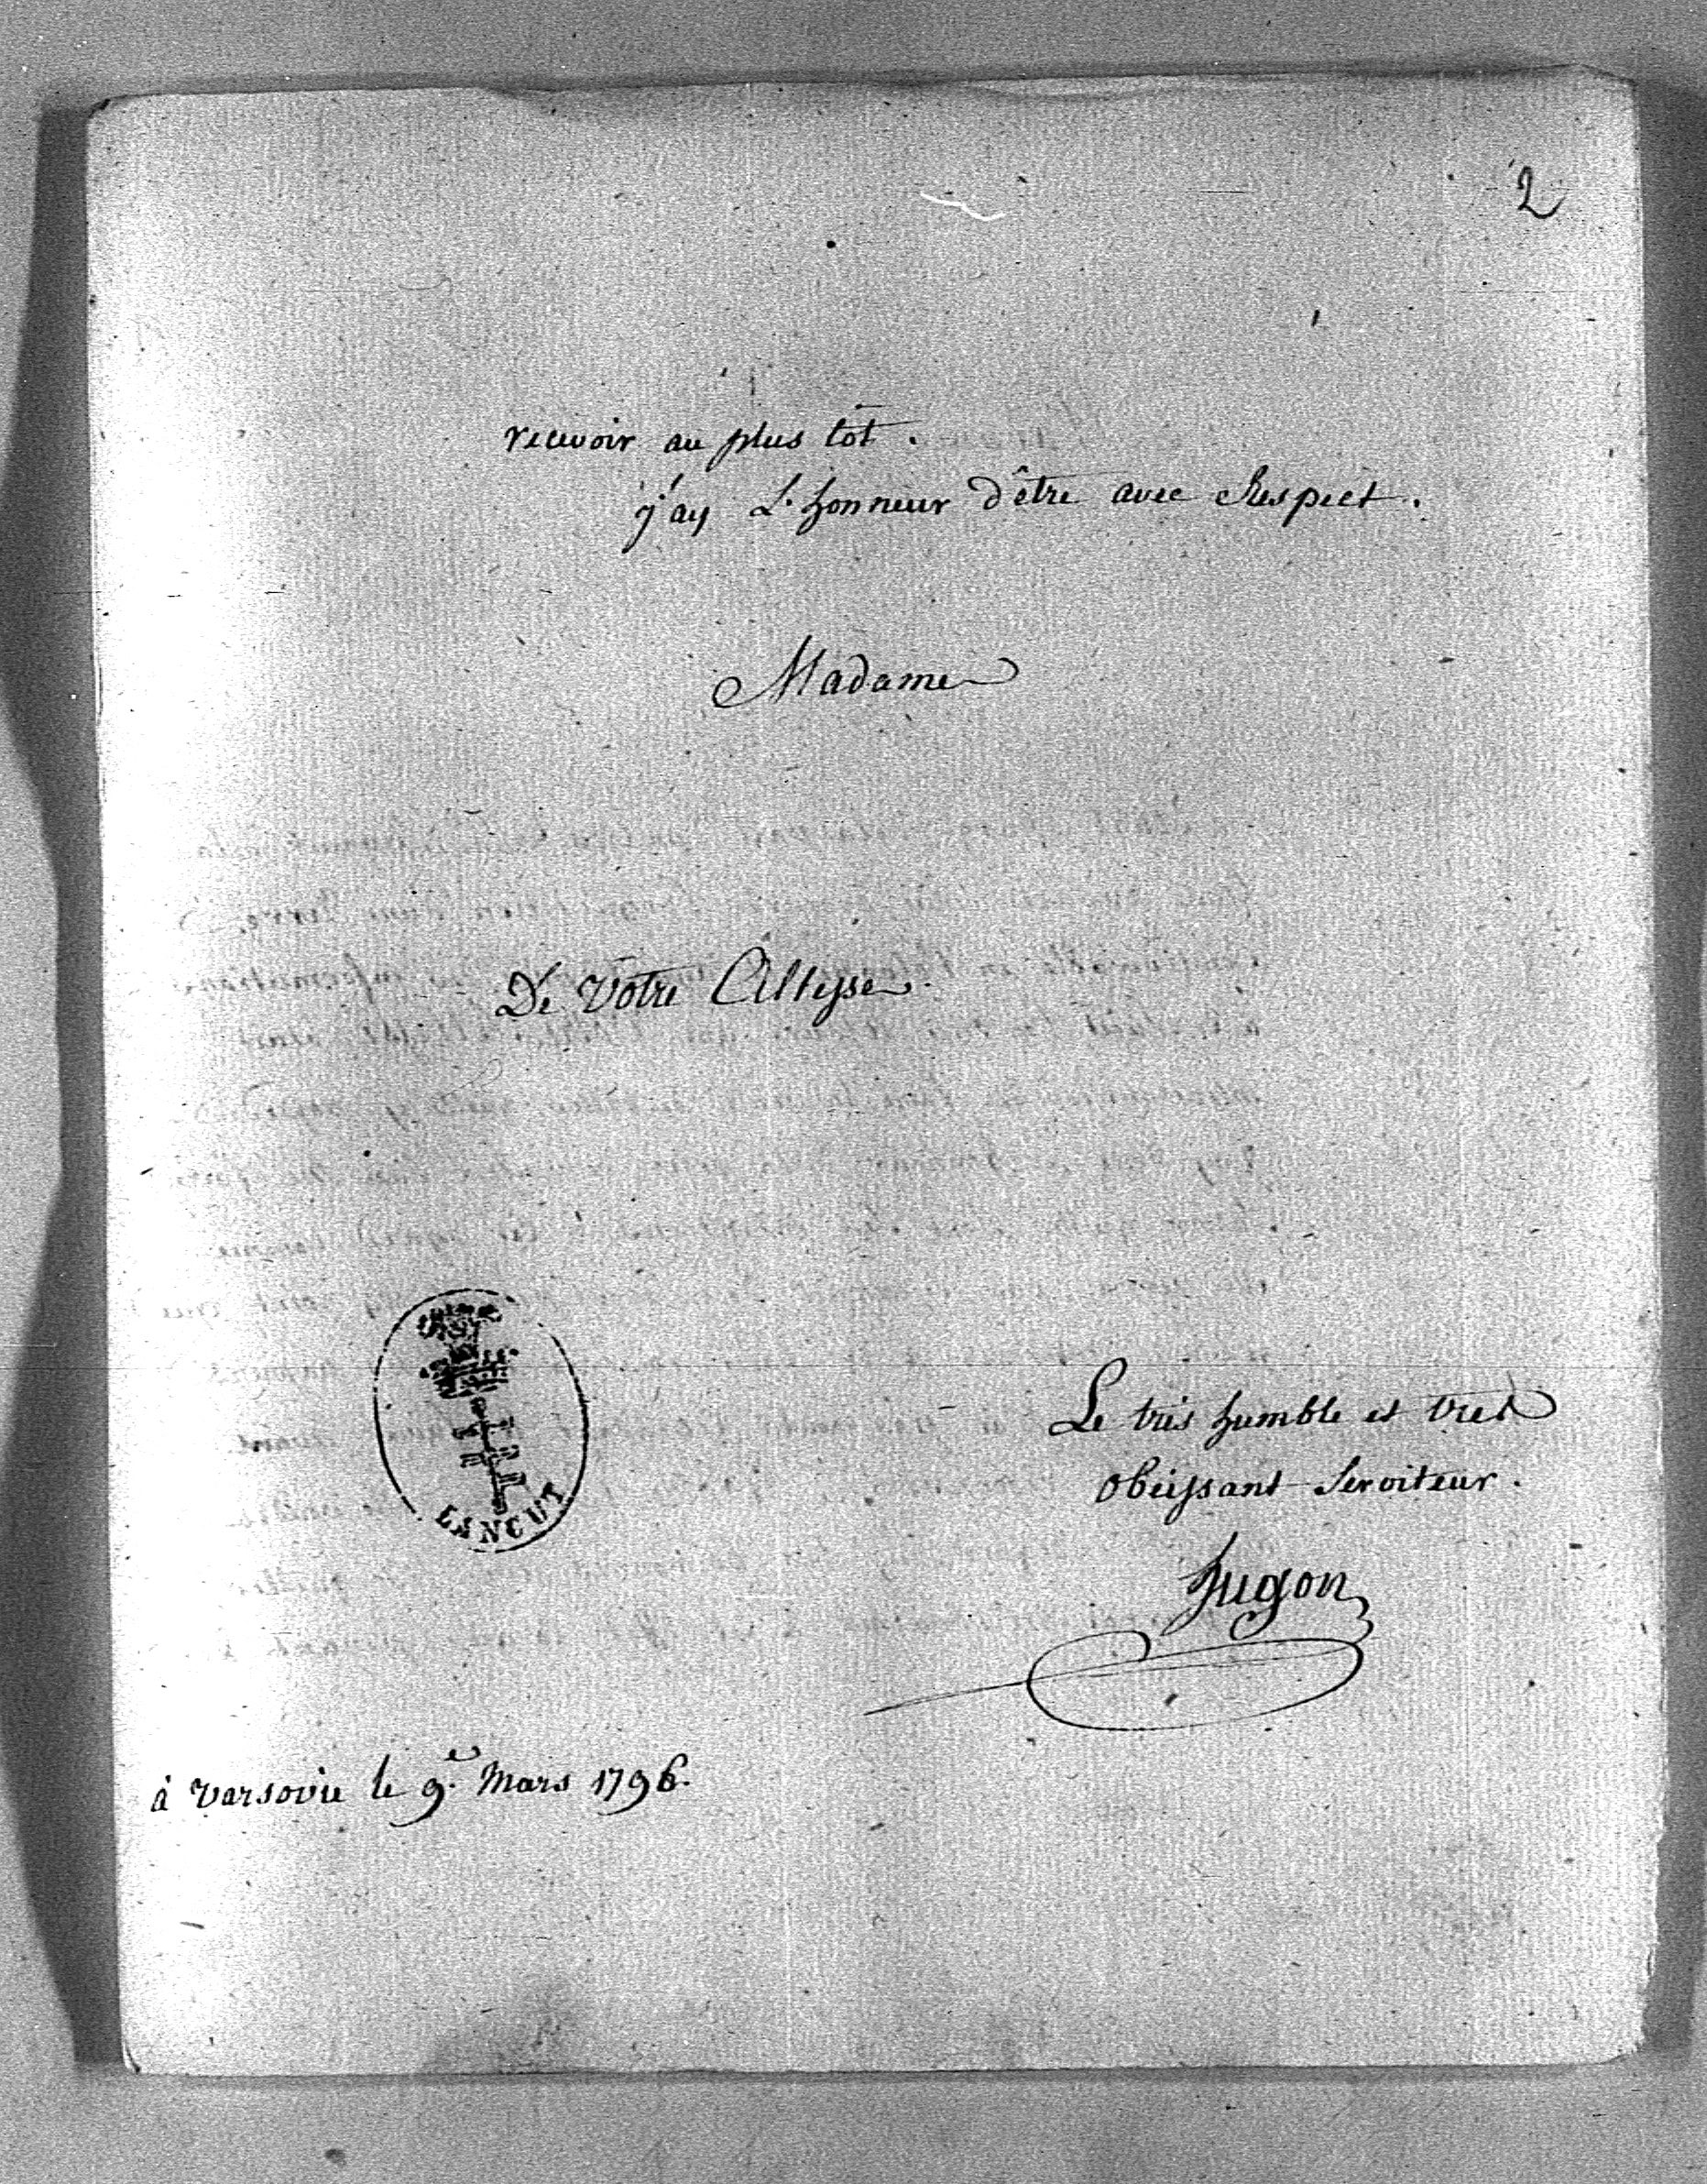 2
recevoir au plus tôt.
j'ay L'honneur d'être avec Respect.
Madame
De Votre Altesse
Le très humble et très
obeissant Serviteur.
Hugon
à Varsovie le 9.e Mars 1796.
ŁAŃCUT